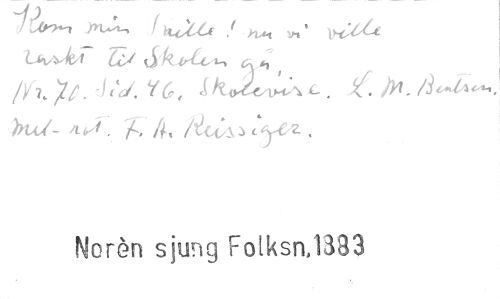 Kom min Snille! nu vi ville
raskt til Skolen gå,
Nr. 70. Sid. 46. Skolevise. L. M. Bentsen.
Mel-rot. F. A. Reissiger.
Norèn sjung Folksn,1883